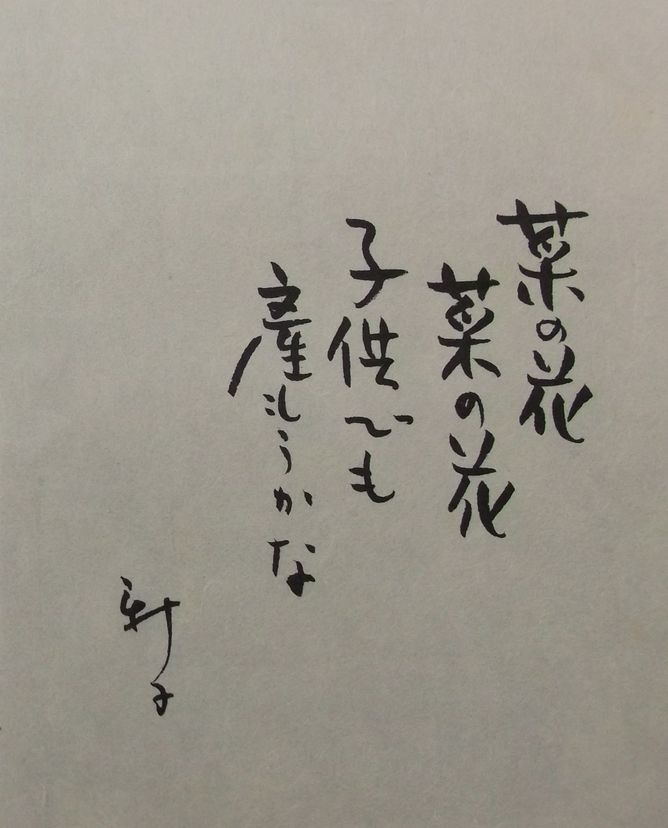 菜の花
菜の花
子供でも
産もうかな
新子